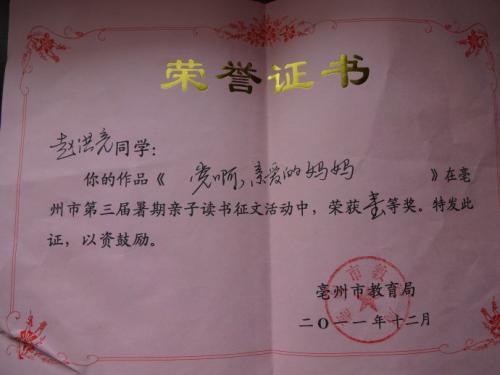 荣誉证书
赵洪亮同学：
你的作品《党啊，亲爱的妈妈》在亳
州市第三届暑期亲子读书征文活动中，荣获壹等奖。特发此
证，以资鼓励。
亳州市教育局
二〇一一年十二月